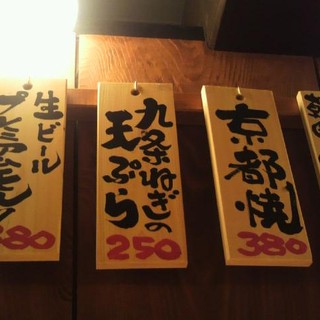 生ビール
プレミアムモルツ
580
九条ねぎの
天ぷら
250
京都焼
380